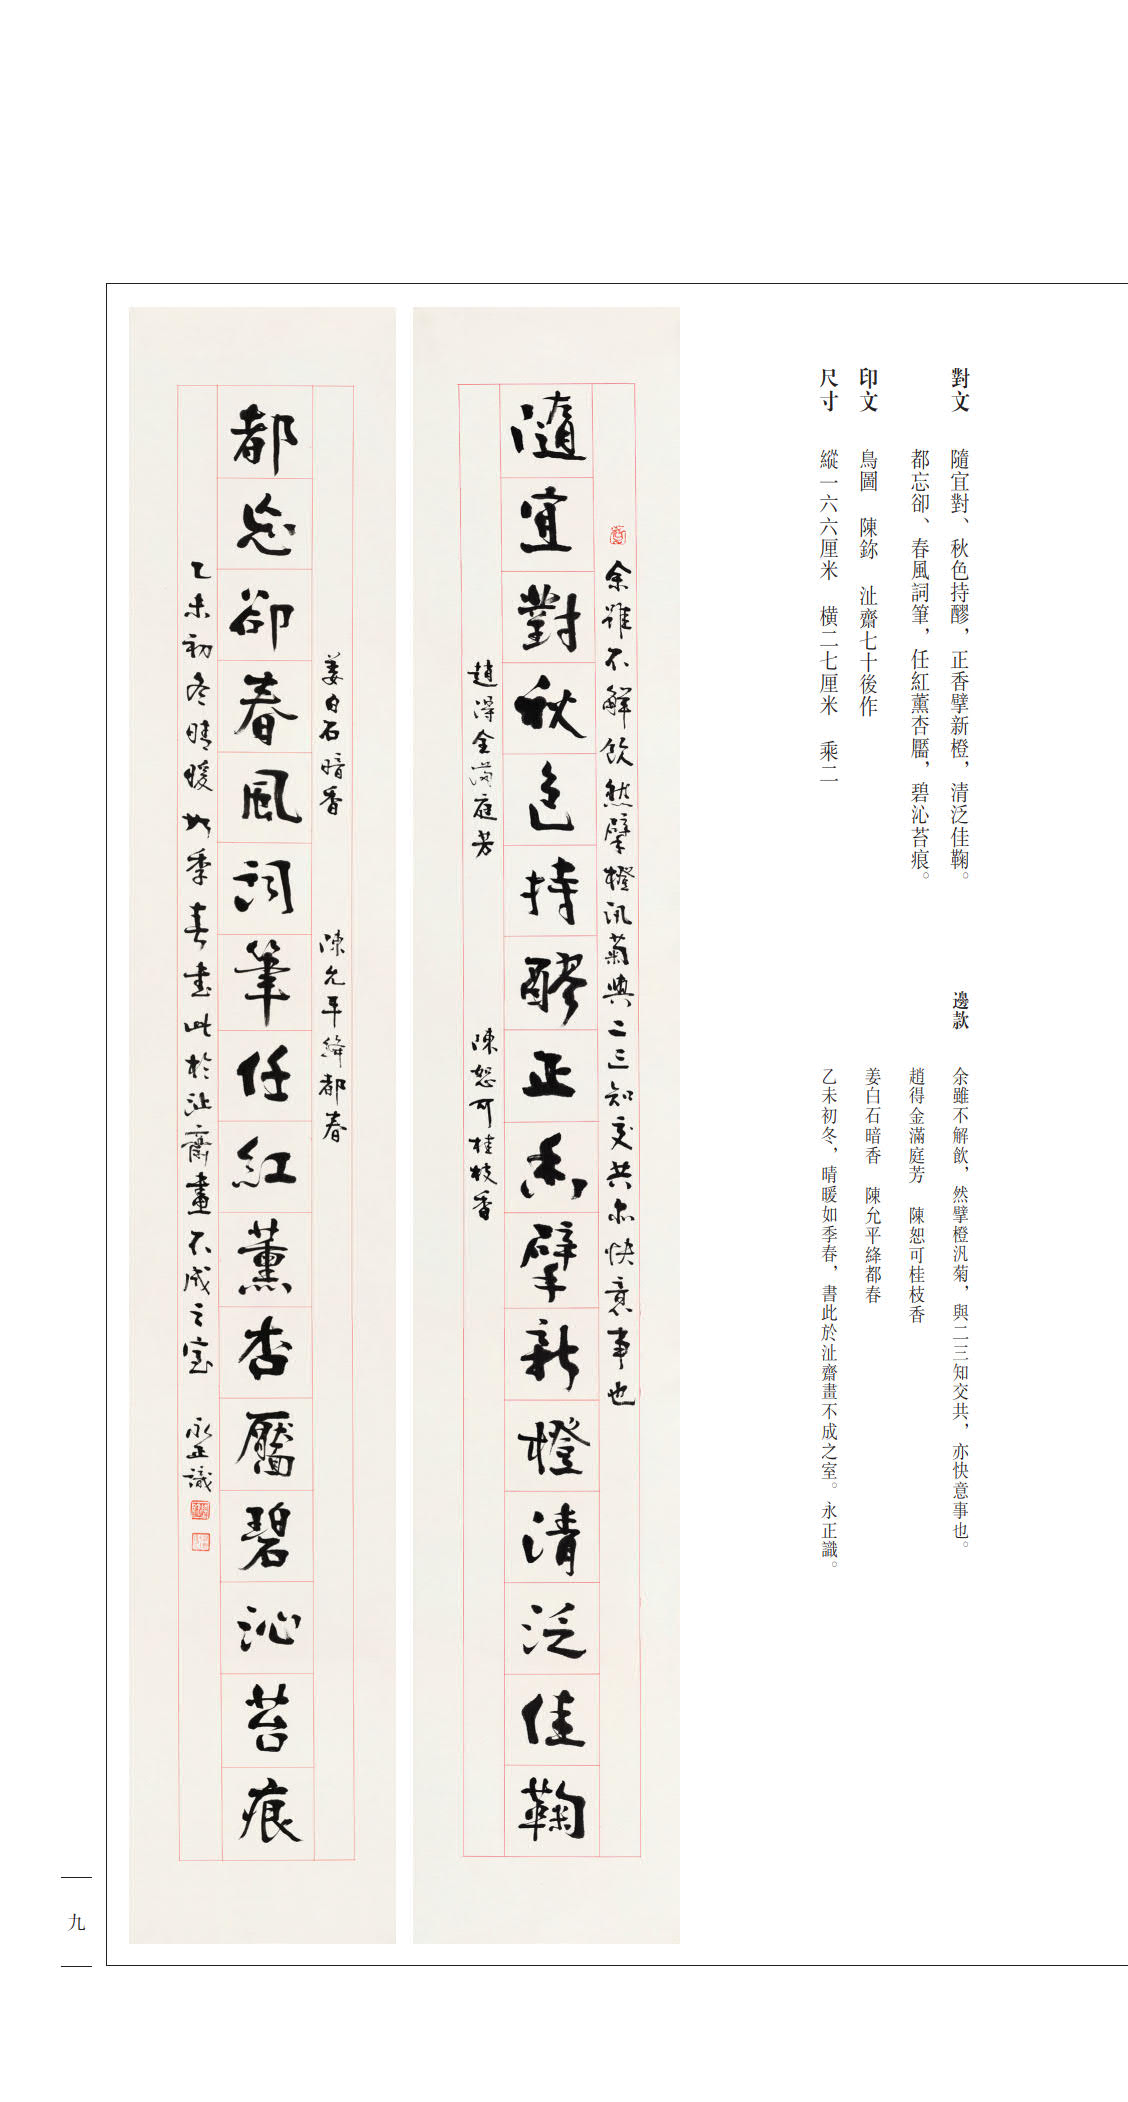 對文　隨宜對、秋色持醪，正香擘新橙，清泛佳鞠。
都忘卻、春風詞筆，任紅薰杏靨，碧沁苔痕。
印文　鳥圖　陳鉨　沚齋七十後作
尺寸　縱一六六厘米　橫二七厘米　乘二
邊款　余雖不解飲，然擘橙汎菊，與二三知交共，亦快意事也。
趙得金滿庭芳　陳恕可桂枝香
姜白石暗香　陳允平絳都春
乙未初冬，晴暖如季春，書此於沚齋畫不成之室。永正識。
余雖不解飲然擘橙汎菊與二三知交共亦快意事也
隨宜對秋色持醪正香擘新橙清泛佳鞠
趙得金滿庭芳　陳恕可桂枝香
姜白石暗香　陳允平絳都春
都忘卻春風詞筆任紅薰杏靨碧沁苔痕
乙未初冬晴暖如季春書此於沚齋畫不成之室　永正識
九